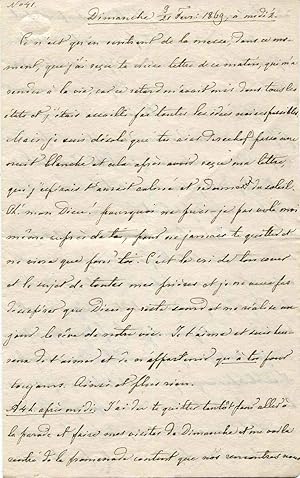 No 41.
Dimanche 9/21 Fevr. 1869, à midi ½.
Ce n'est qu'en rentrant de la messe, dans ce mo-
ment, que j'ai reçu ta chère lettre de ce matin, qui m'a
rendu à la vie, car ce retard m'avait mis dans tous les
états et j'étais accablé par toutes les idées
Mais je suis désolé que tu aies derechef passé une
nuit blanche et cela après avoir reçu ma lettre,
qui j'espérais t'aurait calmée et redonné du soleil.
Oh! mon Dieu! pourquoi ne puis-je pas voler moi
même auprès de toi, pour ne jamais te quitter et
ne vivre que pour toi. C'est le cri de ton cœur
et le sujet de toutes mes prières et je ne veux pas
désespérer que Dieu y reste sourd et ne réalise un
jour le rêve de notre vie. Je t'aime et suis heu-
reux de t'aimer et de n'appartenir qu'à toi pour
toujours. Aimer et plus rien.
A 4 h. après midi. J'ai dû te quitter tantôt pour aller à
la parade et faire mes visites de Dimanche et me voilà
rentré de la promenade content que nos rencontres nous